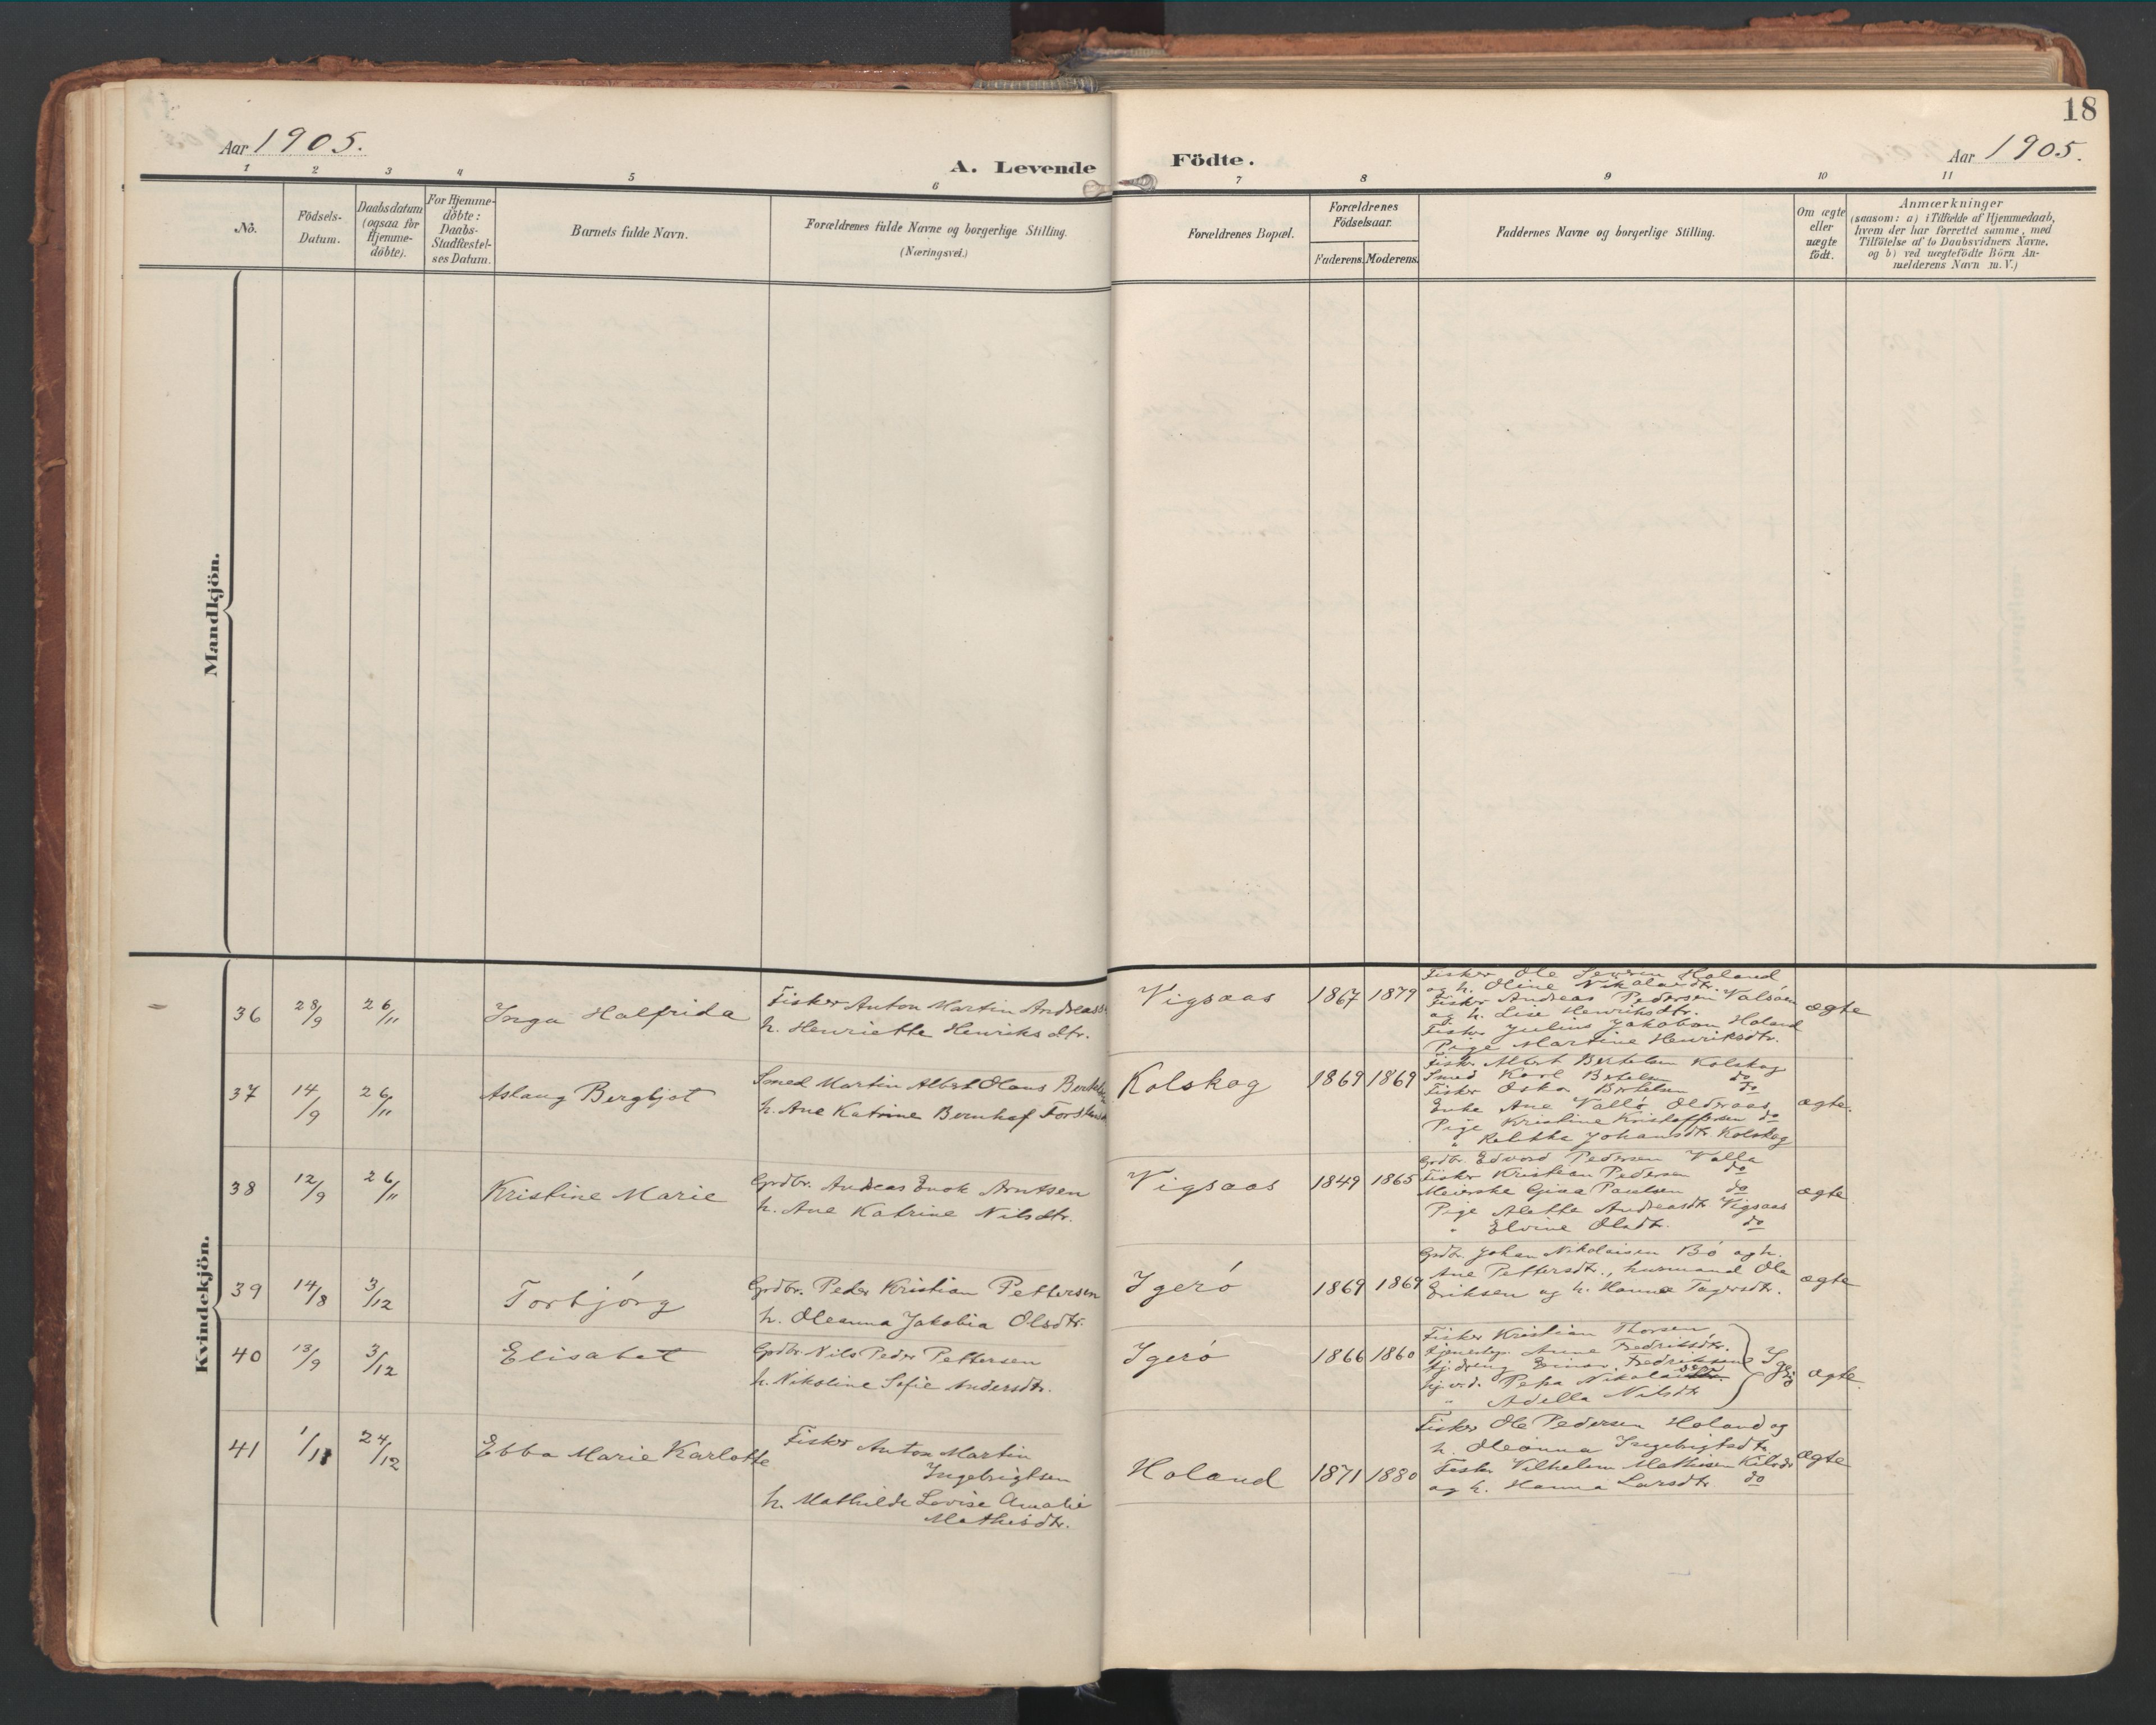 18
Aar 1905.
A. Levende Födte.
Aar 1905.
1 2 3 4 5 6 7 8 9 10 11
No.
Födsels-
Datum.
Daabsdatum
(ogsaa for
Hjemme-
döbte).
For Hjemme-
döbte:
Daabs-
Stadfæstel-
ses Datum.
Barnets fulde Navn.
Forældrenes fulde Navne og borgerlige Stilling.
(Næringsvei.)
Forældrenes Bopæl.
Forældrenes
Födselsaar.
Faderens. Moderens.
Faddernes Navne og borgerlige Stilling.
Om ægte
eller
uægte
födt.
Anmærkninger
(saasom: a) i Tilfælde af Hjemmedaab,
hvem der har forrettet samme, med
Tilföielse af to Daabsvidners Navne.
og b) ved uægtefödte Börn An-
melderens Navn m.V.)
Mandkjön.
Kvindekjön.
36 28/9 26/11 Inga Halfrida
Fisker Anton Martin Andreass.
h. Henriette Henriksdtr.
Vigsaas 1867 1879
Fisker Ole Havrin Holand
og h. Oline Nikolaisdtr.
Fisker Andreas Pedersen Valsøen
og h. Lise Henriksdtr.
Fisker Julius Jakobsen Holand
Pige Martine Henriksdtr.
ægte
37 14/9 26/11 Aslaug Bergljot
Smed Martin Albert Olaus
h. Ane Katrine Bernhof
Kolskog 1869 1869
Fisker Albert Bertelsen Kolskog
Smed Karl Bertelsen do
Fisker Oskar Bertelsen do
Enke Ane Vallø Olderaas
Pige Kristine Kristoffersen do
" Johansdtr. Kolskog
ægte.
38 12/9 26/11 Kristine Marie
Grdbr. Andreas Enok Arntsen
h. Ane Katrine Nilsdtr.
Vigsaas 1849 1865
Grdbr. Edvard Pedersen Valla
Fisker Kristian Pedersen do
Meierske Gina Paulsen do
Pige Alette Andreasdtr. Vigsaas
" Elvine Olsdtr. do
ægte
39 14/8 3/12 Torbjórg
Grdbr. Peder Kristian Pettersen
h. Oleanna Jakobia Olsdtr.
Igeró 1869 1869
Grdbr. Johan Nikolaisen Bó og h.
Ane Pettersdtr., husmand Ole
Eriksen og h. Hanna
ægte
40 13/9 3/12 Elisabet
Grdbr. Nils Peder Pettersen
h. Nikoline Sofie Andersdtr.
Igeró 1866 1860
Fisker Kristian Thorsen
Tjenestep. Anne Fredriksdtr.
tj.dreng Einar Fredriksen
hj.v.d. Petra
" Adella Nilsdtr.
Igeró
ægte.
41 1/11 24/12 Ebba Marie Karlotte
Fisker Anton Martin
Ingebrigtsen
h. Mathilde Lovise Amalie
Mathisdtr.
Holand 1871 1880
Fisker Ole Pedersen Holand og
h. Oleanna Ingebrigtsdtr.
Fisker Vilhelm Mathisen
og h. Hanna Larsdtr. do
ægte